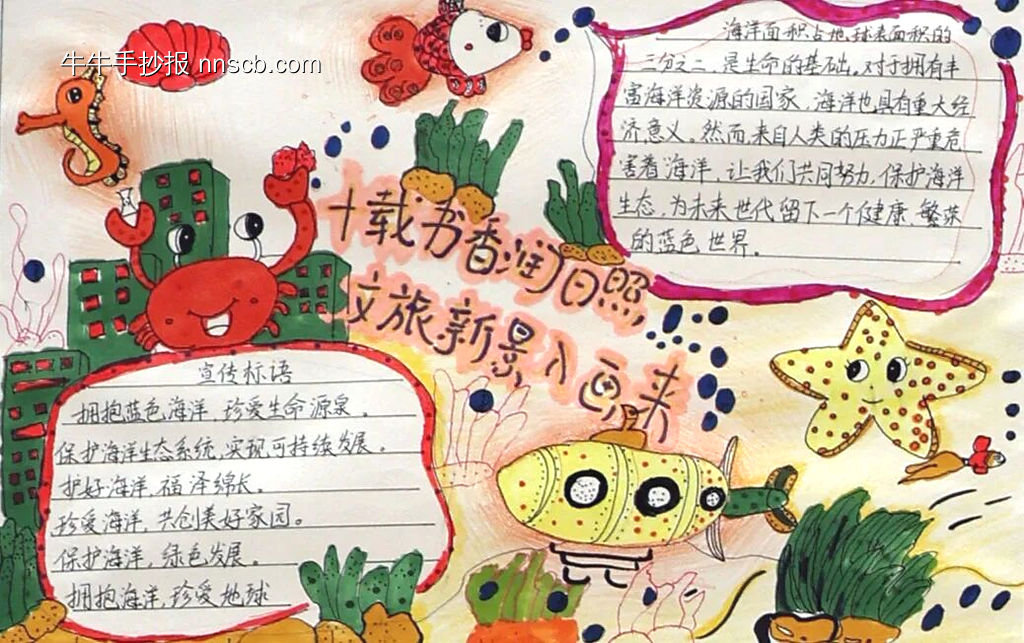 牛牛手抄报 nnscb.com
海洋面积占地球表面积的
三分之二，是生命的基础。对于拥有丰
富海洋资源的国家，海洋也具有重大经
济意义。然而，来自人类的压力正严重危
害着海洋，让我们共同努力，保护海洋
生态，为未来世代留下一个健康、繁荣
的蓝色世界。
十载书香润日照
文旅新景入画来
宣传标语
拥抱蓝色海洋，珍爱生命源泉。
保护海洋生态系统，实现可持续发展。
护好海洋，福泽绵长。
珍爱海洋，共创美好家园。
保护海洋，绿色发展。
拥抱海洋，珍爱地球